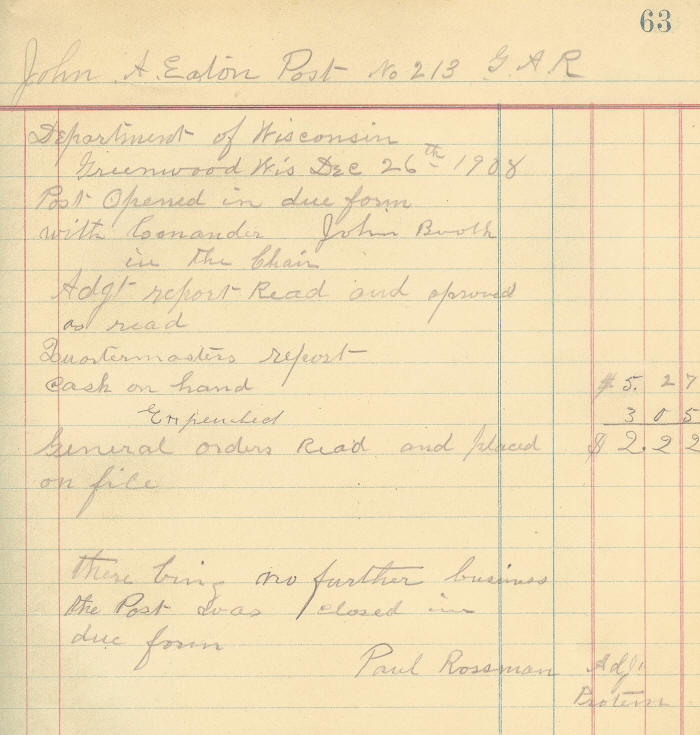 63
John A. Eaton Post No 213 G. A. R
Department of Wisconsin
Greenwood Wis Dec 26th 1908
Post Opened in due form
with Comander John Booth
in the Chair
Adgt report Read and aproved
as read
Quartermasters report
Cash on hand $ 5. 27
Expended 3 05
General orders Read and placed $ 2.22
on file
there being no further business
the Post was closed in
due form
Paul Rossman Adjt
Protem